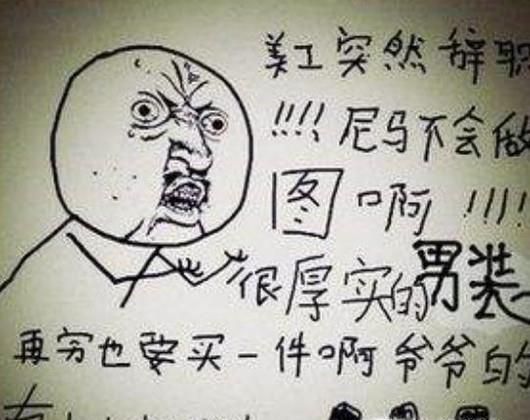 美工突然辞职
!!!! 尼马不会做
图啊 !!!!
很厚实的男装
再穷也要买一件啊爷爷的